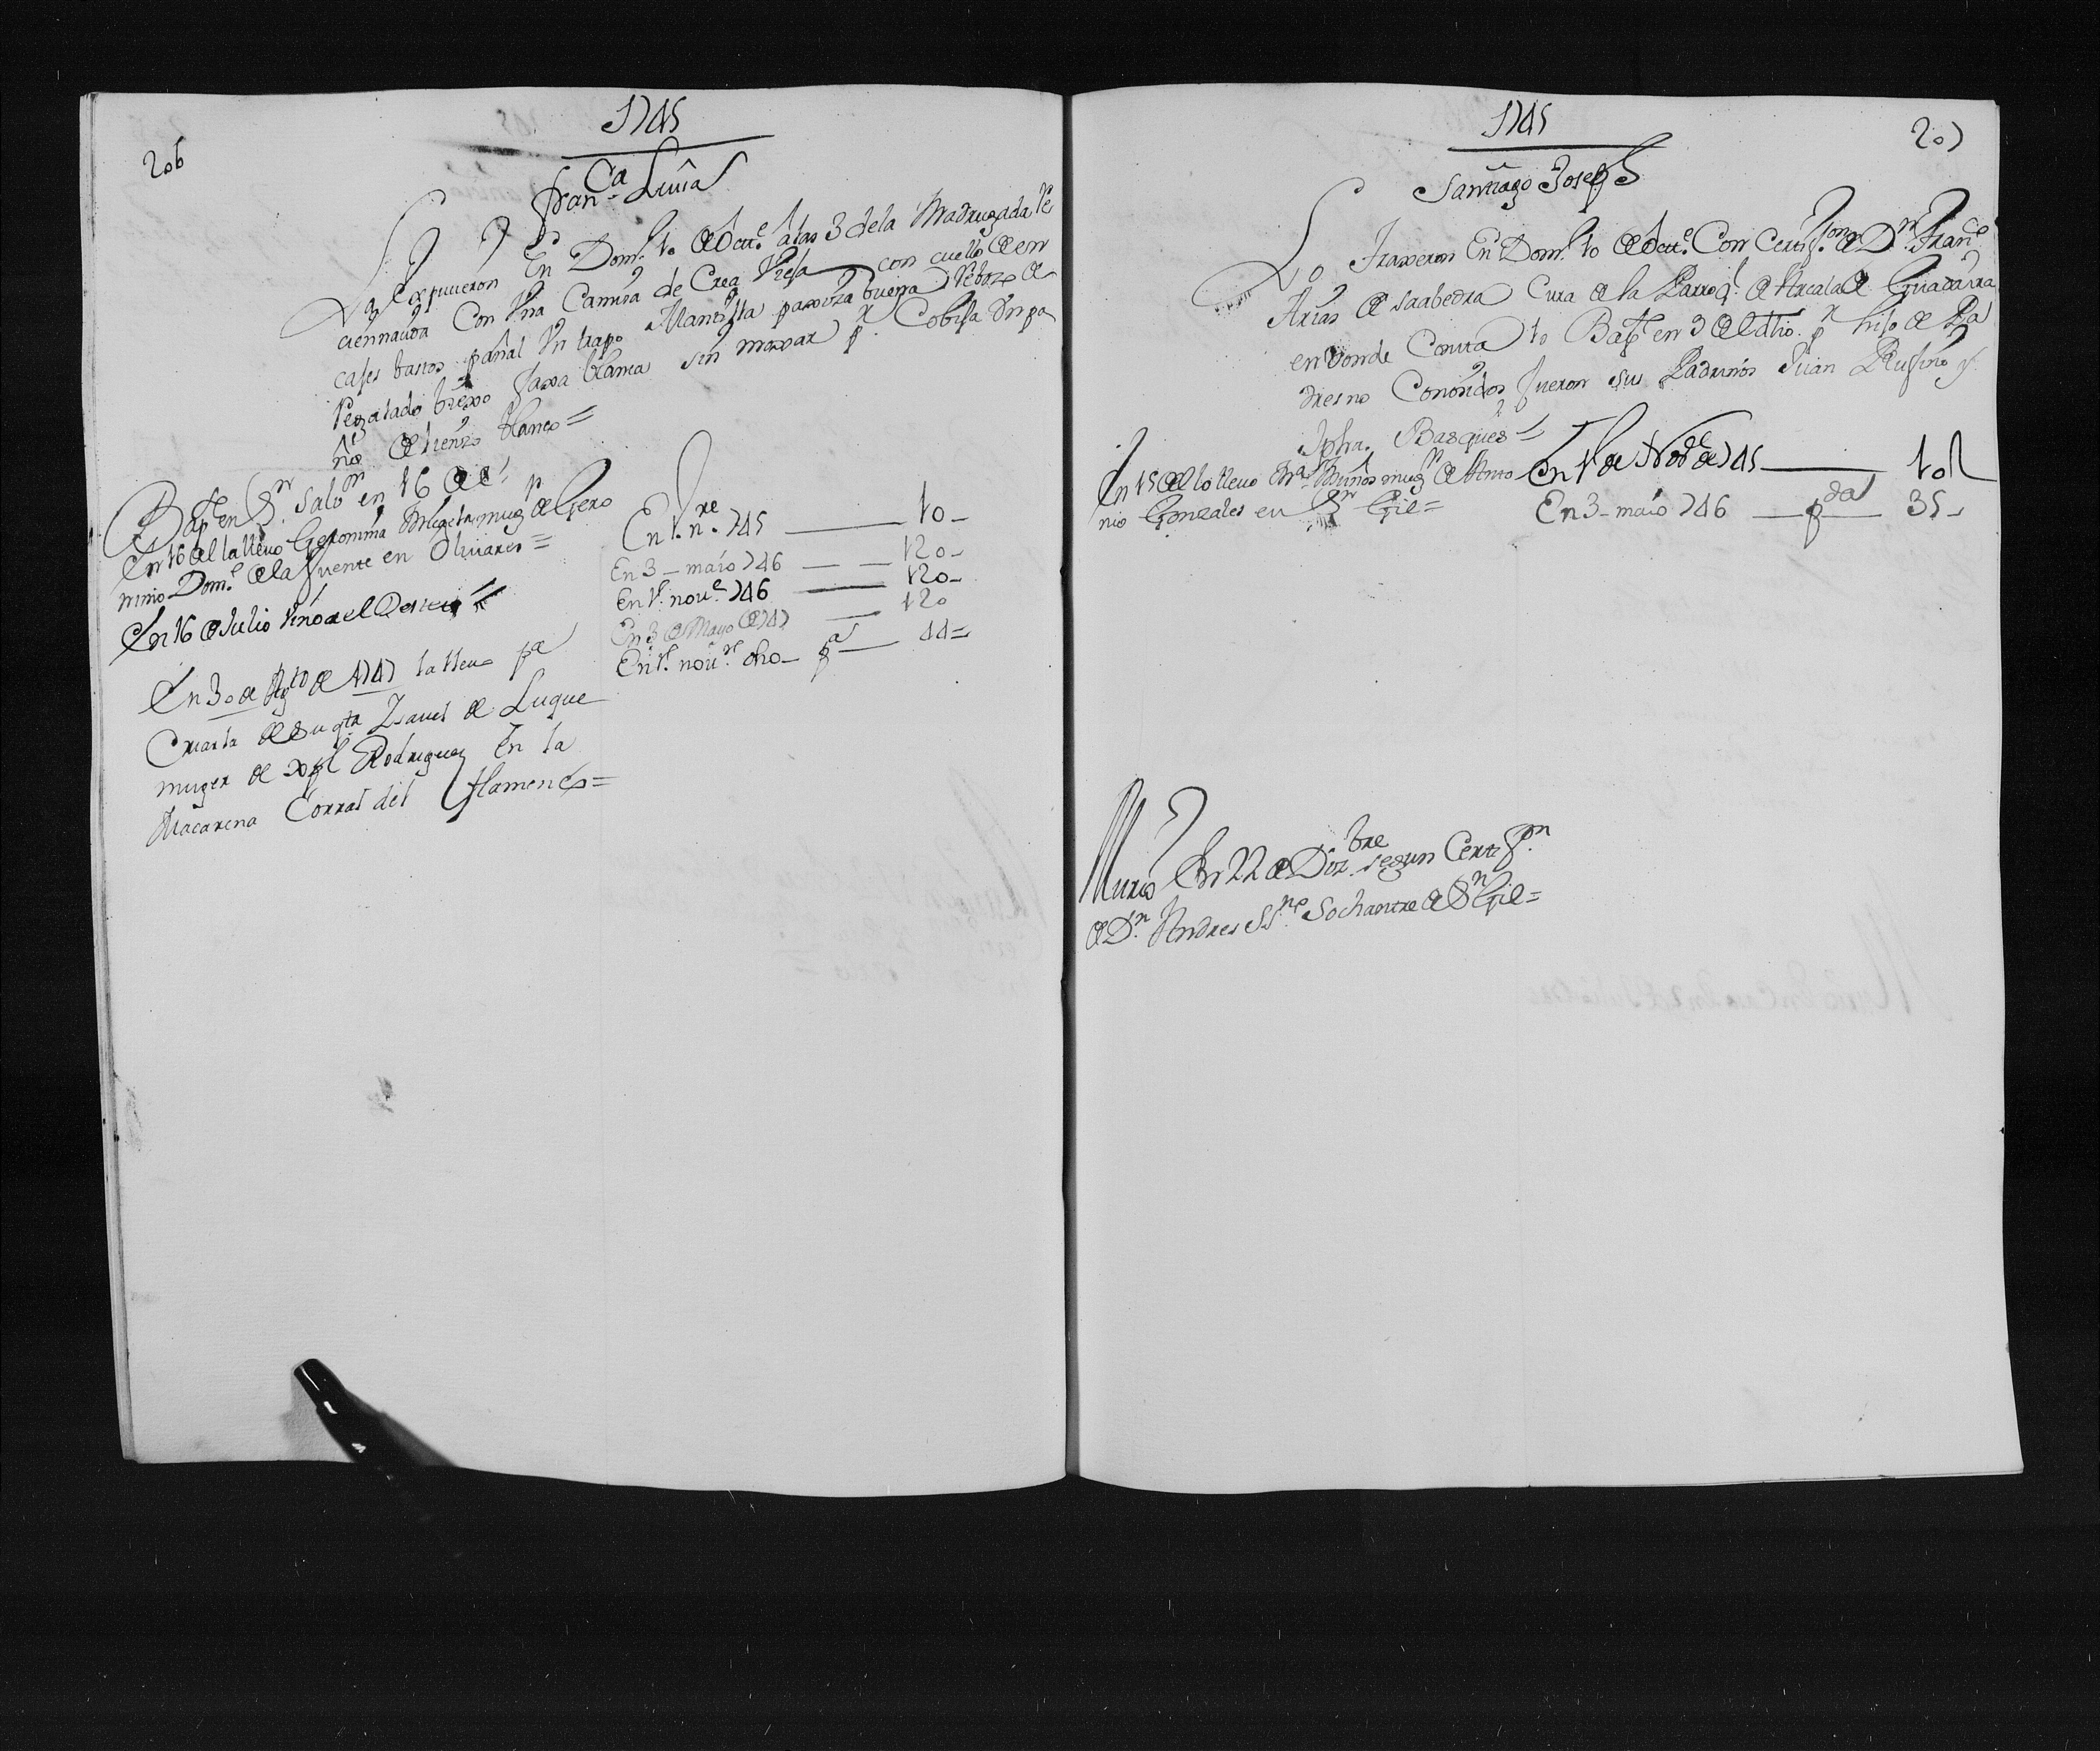 206
1745
Fran.ca Luisa
La expusieron En Dom.o 10 de Oct.e a las 3 de la Madrugada Re
cien nacida Con Una Camisa de Crea Vieja con cuello de en
cajes bastos pañal Un trapo Mantilla parda buena Rebozo de
Regatado biexo faxa blanca sin marcar p.r Cobija Un pa
ño de lienzo blanco =
Bap.e en S.r Salb.or en 16 de el
En 16 del la llevo Geronima mug.r de Gero
nimo Dom.e de la fuente en Olivares =
En 16 de Julio vino de el
En 30 de Ag.to de 1747 la llevo p.a
Criarla de su q.ta Isavel de Luque
muger de Xpl Rodriguez En la
Macarena Corral del Flamenco =
En 1.o n.re 745 — 10 –
En 3 – maio 746 — 120 –
En 1.o nou.e 746 — 120 –
En 3 de Mayo de 747 — 120
En 1.o nou.re dho – p.da — 44 =
1745
207
Santiago Joseph
Lo Traxeron En Dom.o 10 de Oct.e Con Certif.on de D.n Fran.co
Arias de Saabedra Cura de la Parroq.l de Alcala de Guadaira
en donde Consta lo Bap.e en 3 de dho p.r hijo de Pa
dres no Conosidos fueron sus Padrinos Juan Rufino y
Jpha. Basques =
En 15 del lo llevo Fr.a Muños mug.r de Anto
nio Gonzales en S.n Gil =
En 1.o de Nob.e de 745 — 10
En 3 – maio 746 — p.da — 35 –
Murio En 22 de Diz.bre segun Certif.on
de D.n Andres Sochantre de S.n Gil =